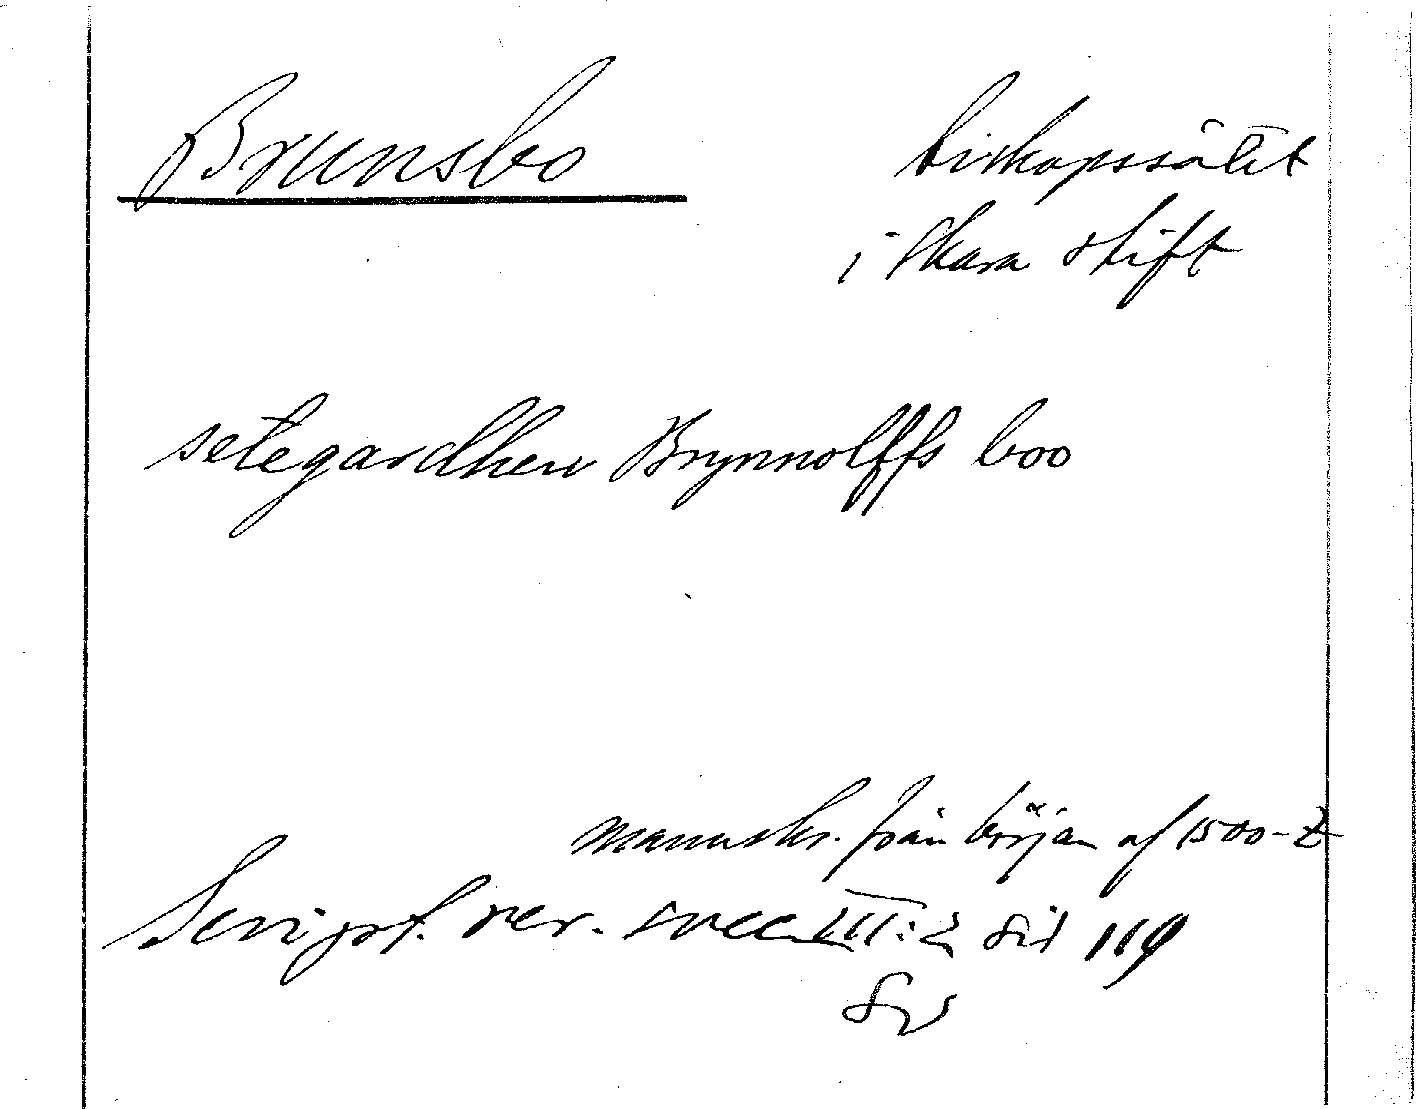 Brunsbo
biskopssätet
i Skara stift
setegardhen Brynnolffs boo
manuskr. från början af 1500-t
Script. rer. svec III:2 sid 119